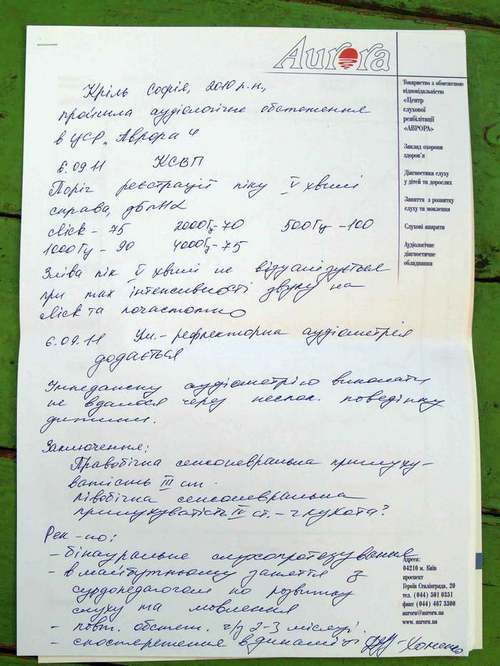 Aurora
Товариство з обмеженою
відповідальністю
«Центр
слухової
реабілітації
«АВРОРА»
Заклад охорони
здоров'я
Діагностика слуху
у дітей та дорослих
Заняття з розвитку
слуху та мовлення
Слухові апарати
Аудіологічне
діагностичне
обладнання
Кріль Софія, 2010 р.н.,
пройшла аудіологічне обстеження
в ЦСР „Аврора"
6.09.11 КСВП
Поріг реєстрації піку V хвилі
справа, дБпПЧ
click - 75 2000Гц-70 500Гц-100
1000Гц - 90 4000Гц-75
Зліва пік V хвилі не візуалізується
при max інтенсивності звуку на
click та почастотно
6.09.11 Ум.-рефлекторна аудіометрія
додається
Імпедансну аудіометрію виконати
не вдалося через неспок. поведінку
дитини.
Заключення:
Правобічна сенсоневральна приглуху-
ватість III ст.
Лівобічна сенсоневральна
приглухуватість IV ст. – глухота?
Рек-но:
- бінауральне слухопротезування
- в майбутньому заняття з
сурдопедагогом по розвитку
слуху та мовлення
- повт. обстеж. ч/з 2-3 місяці
- спостереження в динаміці
Адреса:
04210 м. Київ
проспект
Героїв Сталінграда, 20
тел. (044) 501 0351
факс: (044) 467 5300
aurora@aurora.ua
www.aurora.ua